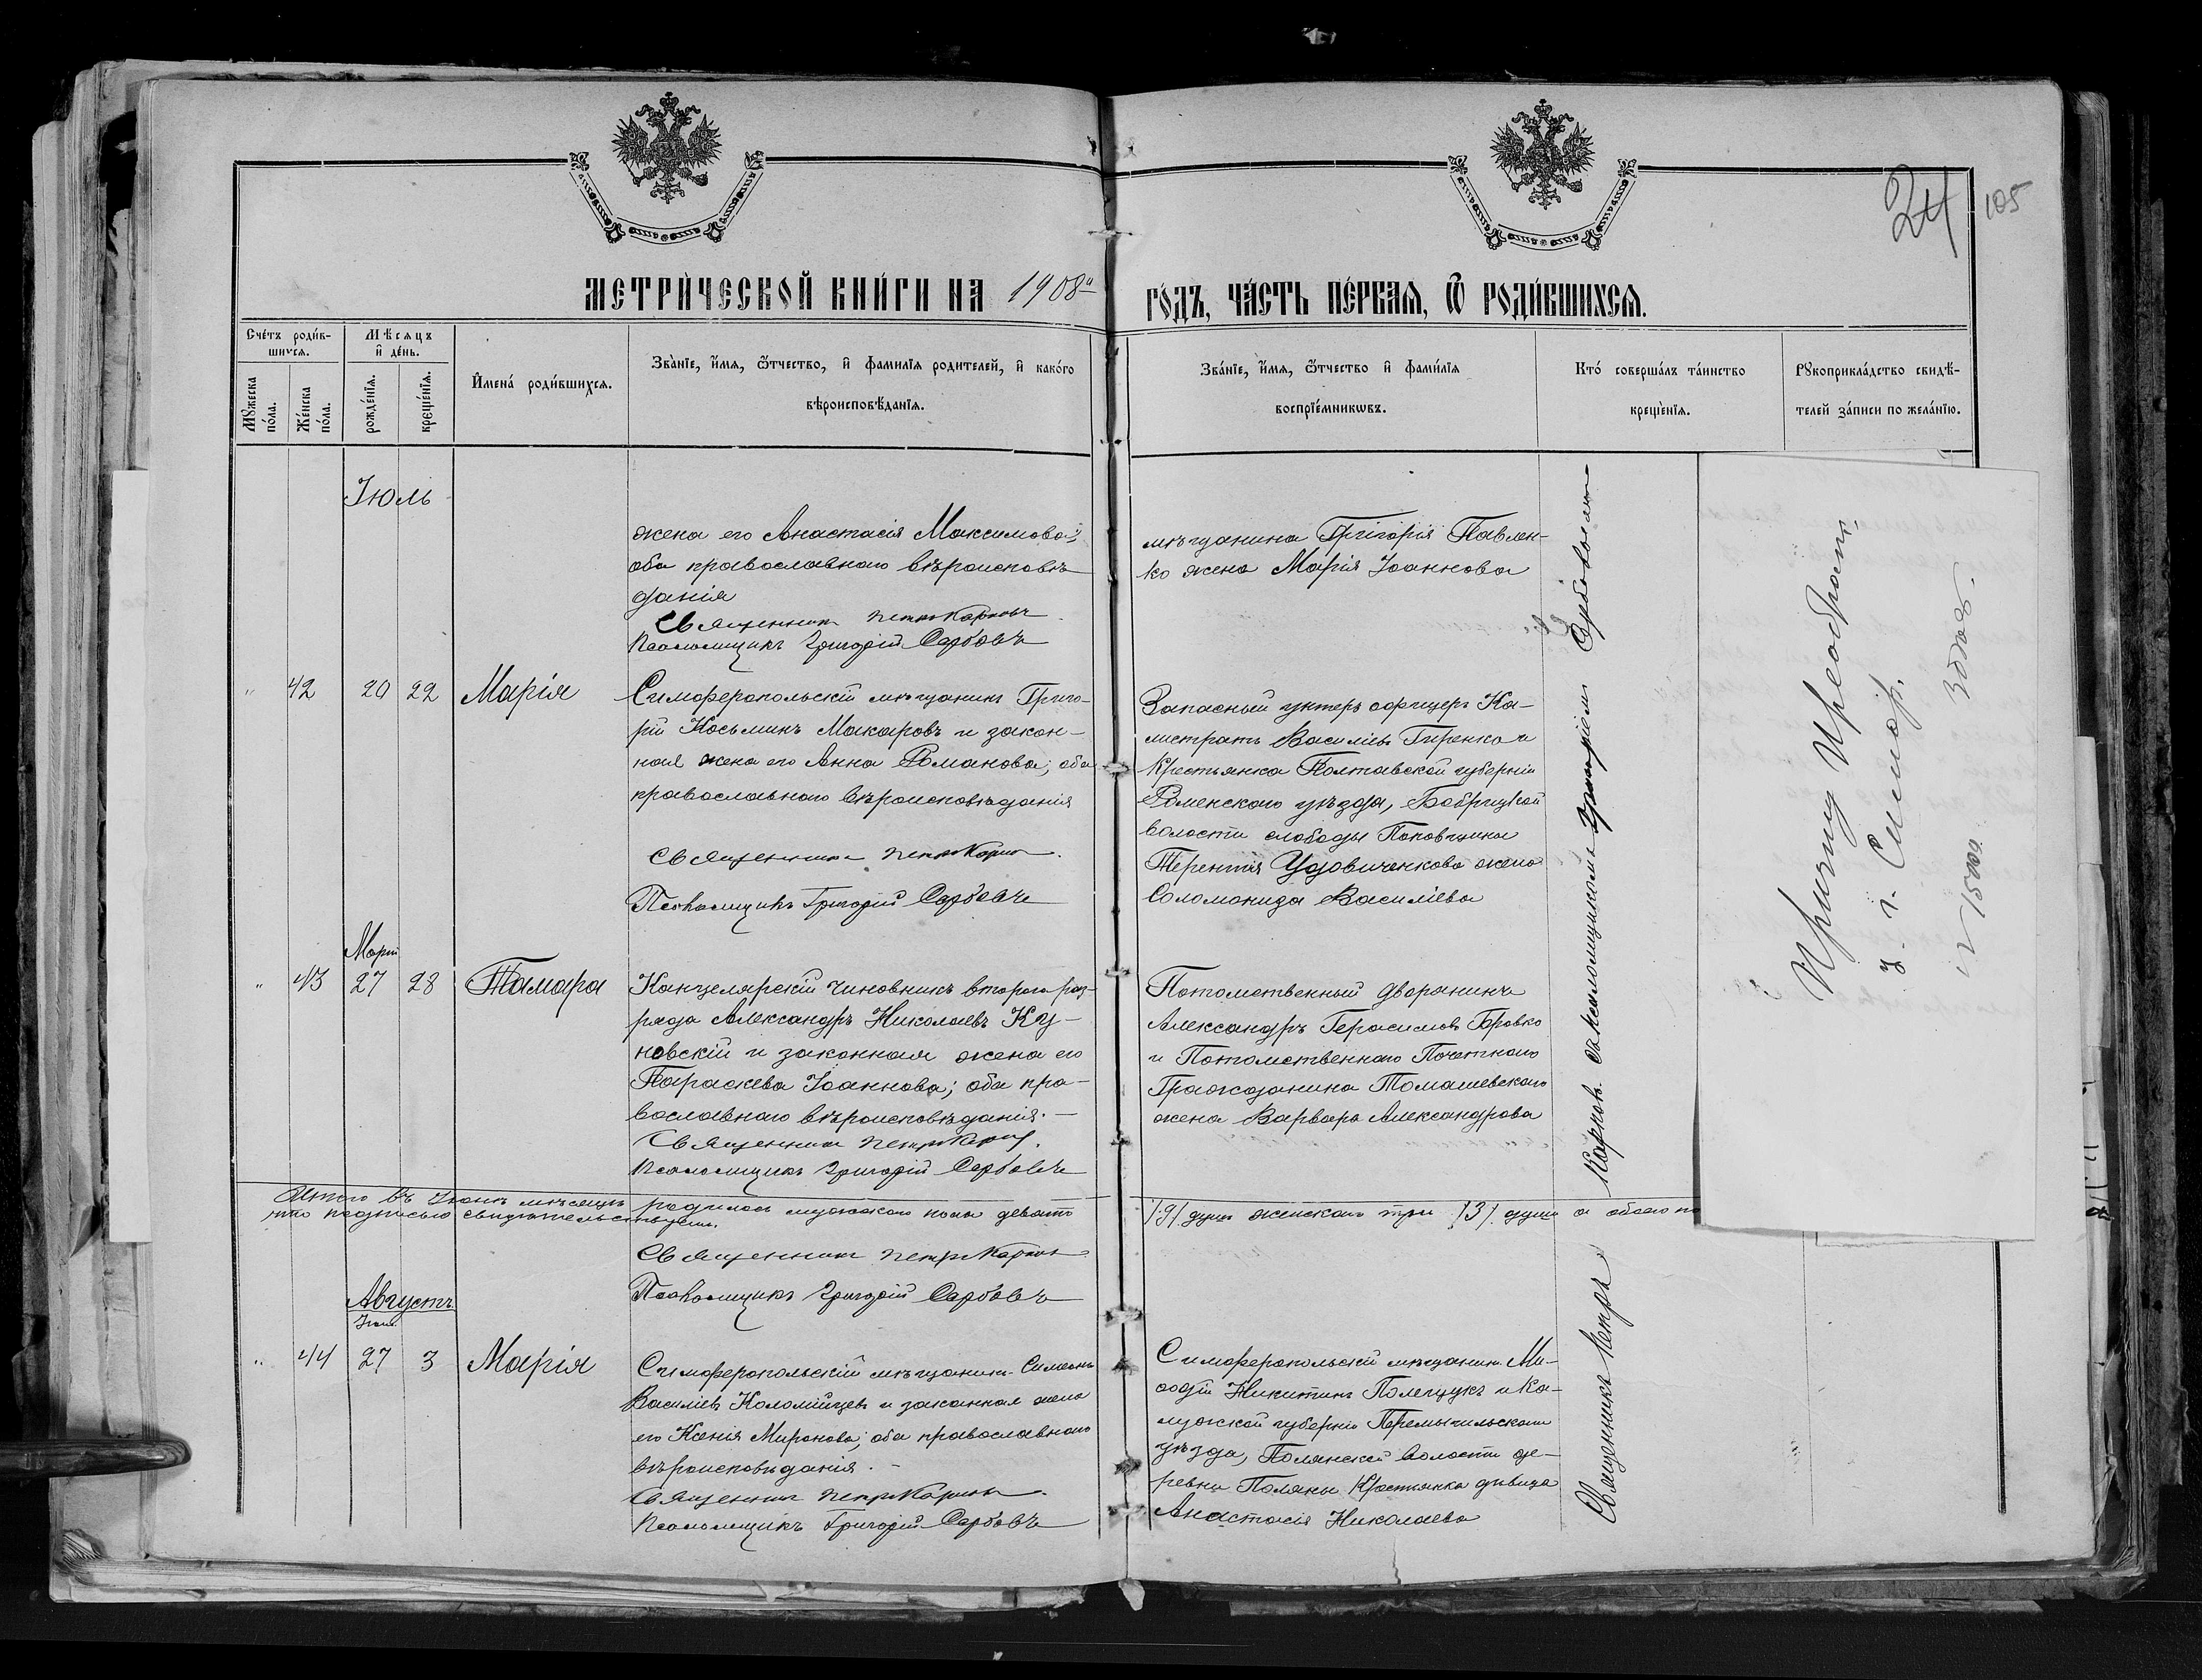 24
105
МЕТРИЧЕСКОЙ КНИГИ НА 1908й ГОДЪ, ЧАСТЬ ПЕРВАЯ, Ѿ РОДИВШИХСЯ.
Счетъ родив-
шихся.
Мꙋжеска
пола.
Женска
пола.
Мѣсяцъ
и день.
рожденія.
крещенія.
Имена родившихся.
Званіе, имя, ѿтчество, и фамилія родителей, и какого
вѣроисповѣданія.
Званіе, имя, ѿтчество и фамилія
воспріемникѡвъ.
Кто совершалъ таинство
крещенія.
Рꙋкоприкладство свидѣ-
телей записи по желанію.
Іюль
жена его Анастасія Максимова;
оба православнаго вѣроисповѣ-
данія
Священник Петръ Карпов
Псаломщикъ Григорій Сербовъ
мѣщанина Григорія Павлен-
ко жена Марія Іоаннова
„ 42 20 22 Марія
Симферопольскій мѣщанинъ Григо-
рій Косьминъ Макаровъ и закон-
ная жена его Анна Романова; оба
православнаго вѣроисповѣданія
Священник Петръ Карпов.
Псаломщикъ Григорій Сербовъ
Запасный унтеръ офицеръ Ка-
листратъ Василіевъ Гиренко и
Крестьянка Полтавской губерніи
Роменскаго уѣзда, Бобрицкой
волости слободы Поповщины
Терентія Удовиченкова жена
Соломонида Василіева
Март
„ 43 27 28 Тамара
Канцелярскій чиновникъ второго раз-
ряда Александръ Николаевъ Ку-
новскій и законная жена его
Параскева Іоаннова; оба пра-
вославнаго вѣроисповѣданія.—
Священник Петръ Карпов.
Псаломщикъ Григорій Сербовъ
Потомственный Дворянинъ
Александръ Герасимовъ Боровко
и Потомственнаго Почетнаго
Гражданина Томашевскаго
жена Варвара Александрова
Итого въ мѣсяцѣ родилось мужскаго пола девять /9/ душъ женскаго три /3/ души а обоего по
что подписью свидѣтельствуемъ.
Священник Петръ Карпов
Псаломщикъ Григорій Сербовъ
Августъ
„ 44 27 3 Марія
Симферопольскій мѣщанинъ Симеонъ
Василіевъ Коломійцевъ и законная жена
его Ксенія Миронова; оба православнаго
вѣроисповѣданія.—
Священник Петръ Карпов.
Псаломщикъ Григорій Сербовъ
Симферопольскій мѣщанинъ Ме-
ѳодій Никитинъ Полещукъ и Ка-
лужской губерніи Перемышльскаго
уѣзда, Полянской волости де-
ревни Поляны Крестьянка дѣвица
Анастасія Николаева
Священникъ Петръ Карповъ съ псаломщикомъ Григоріемъ Сербовымъ
Причту Преображ.
ц. г. Симфер.
№ 1500.